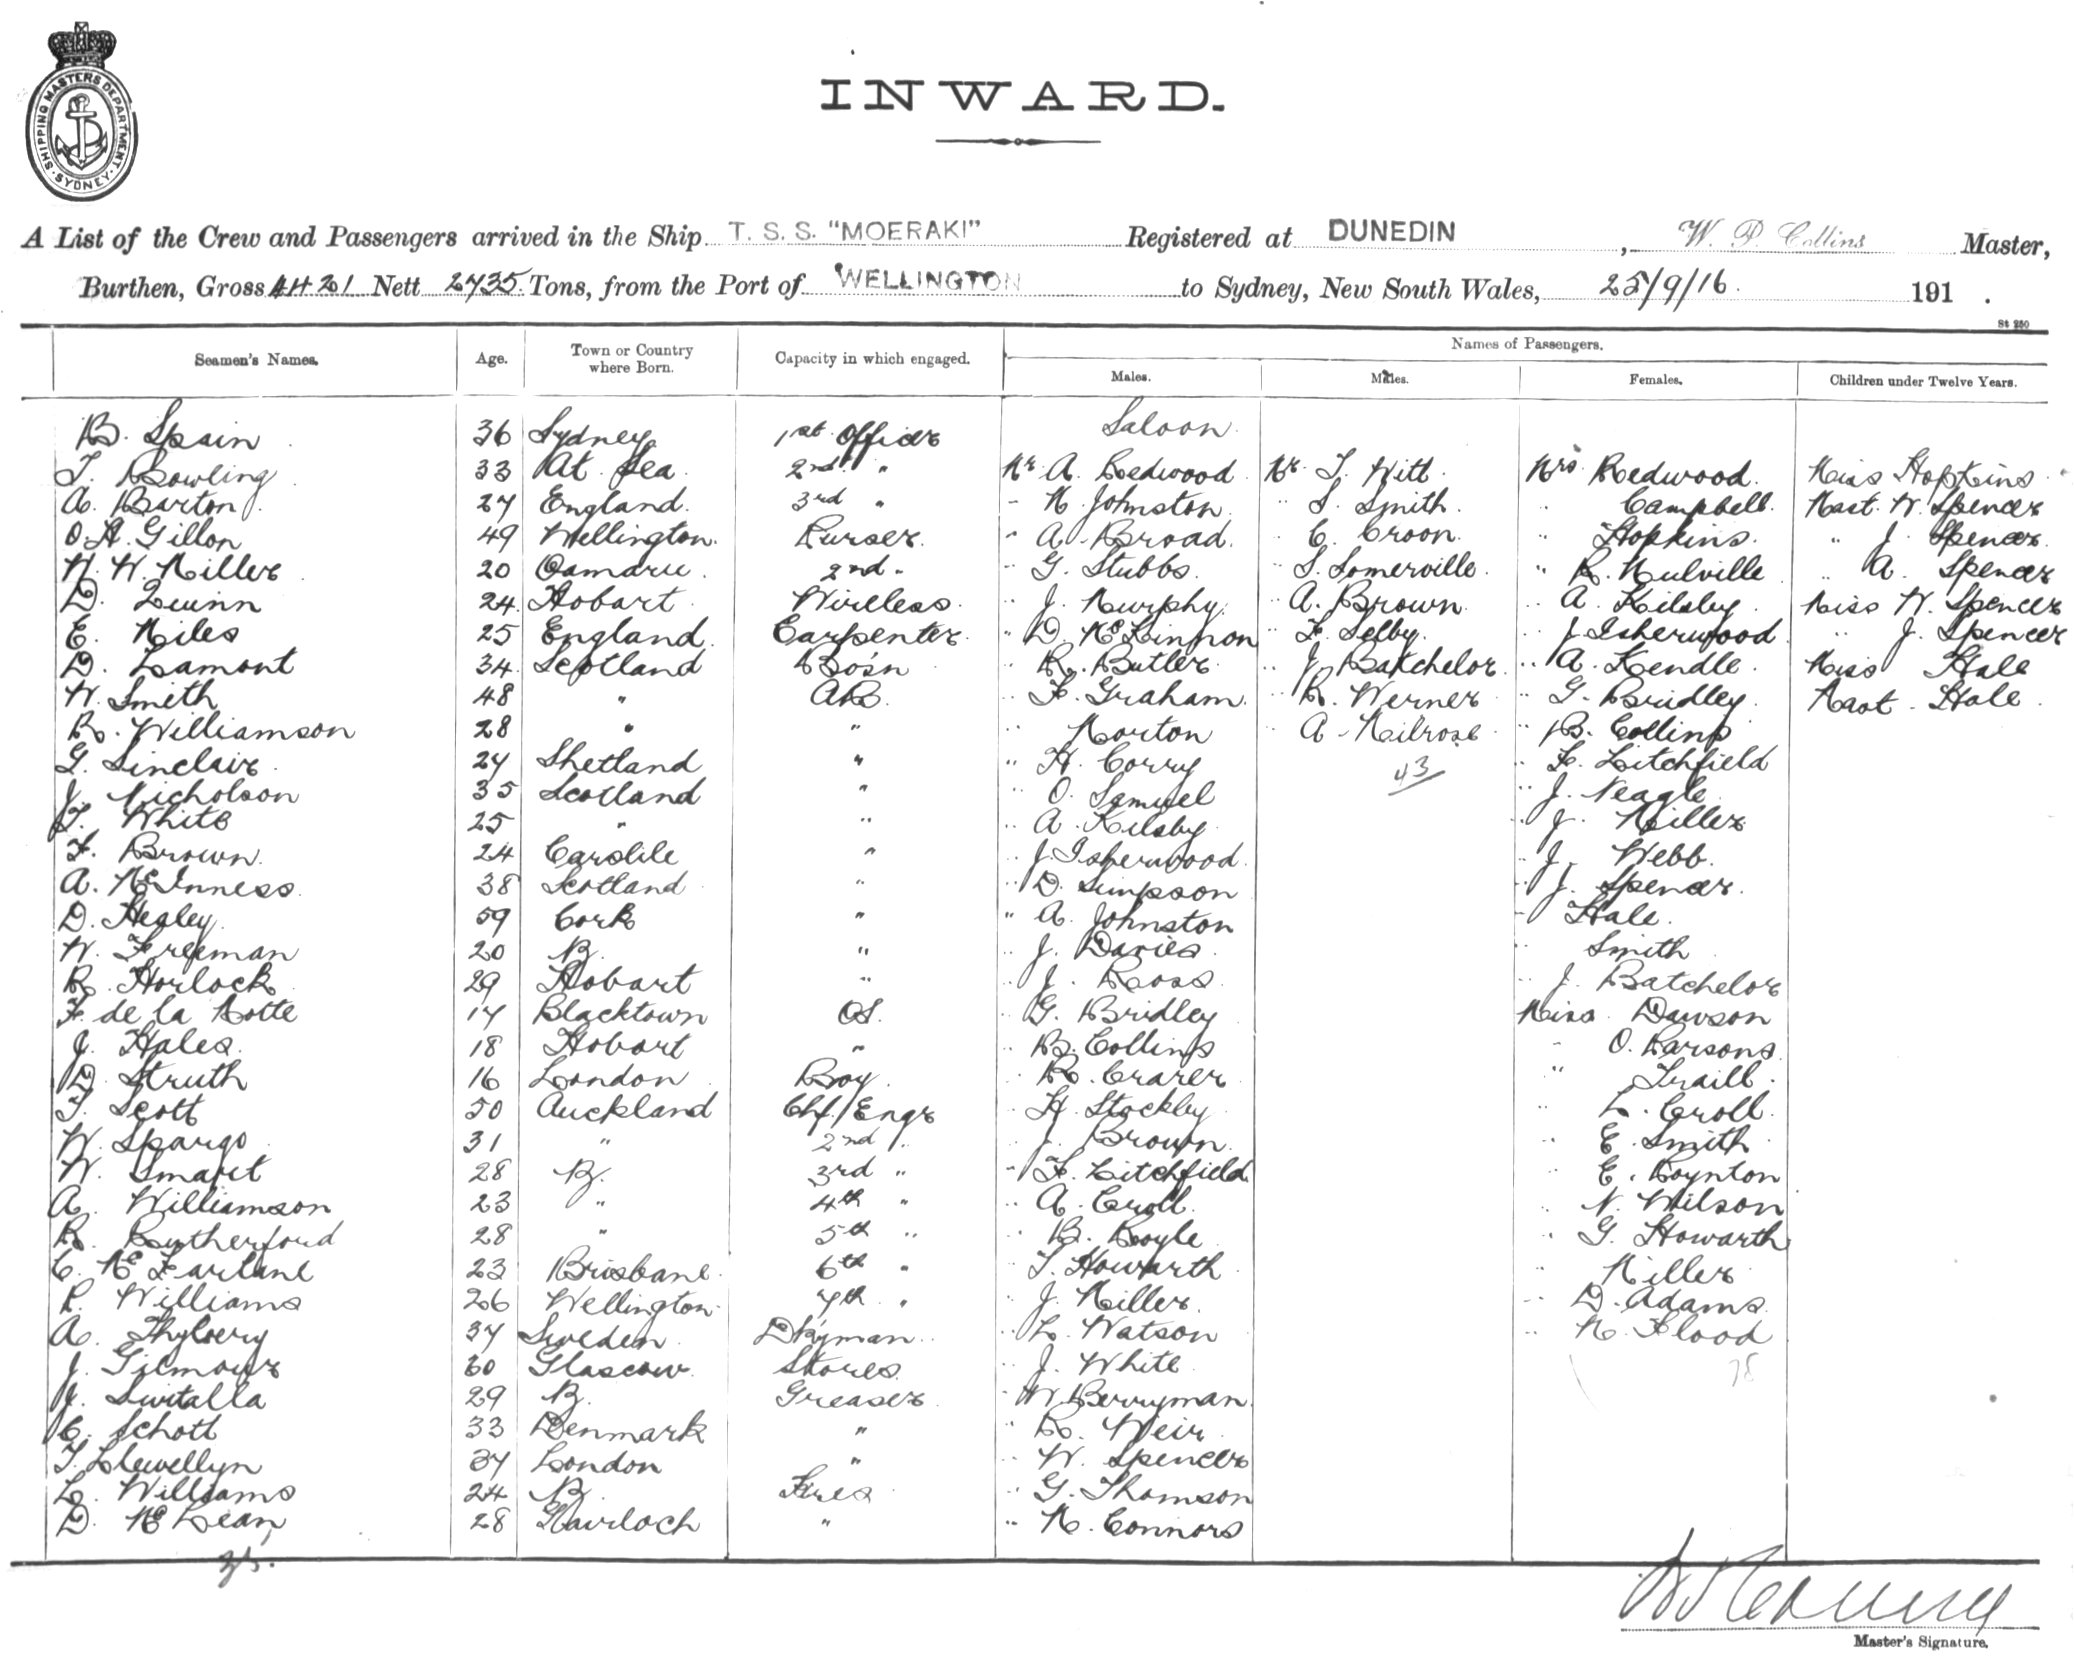 SHIPPING MASTERS DEPARTMENT. SYDNEY.
INWARD.
A List of the Crew and Passengers arrived in the Ship T. S. S. "MOERAKI" Registered at DUNEDIN, W. P. Collins Master,
Burthen, Gross 4421 Nett 2735 Tons, from the Port of WELLINGTON to Sydney, New South Wales, 25/9/16. 191 .
St 250
Seamen's Names. Age. Town or Country where Born. Capacity in which engaged. Names of Passengers.
Males. Males. Females. Children under Twelve Years.
Saloon
B. Spain 36 Sydney 1st Officer
T. Bowling 33 At Sea 2nd " Mr A. Redwood Mr T. Witt Mrs Redwood. Miss Hopkins
A. Barton 27 England 3rd " " N. Johnston " S. Smith. " Campbell. Mast. W. Spencer
O. A. Gillon 49 Wellington. Purser. " A. Broad. " C. Croon. " Hopkins. " J. Spencer
W. W. Miller 20 Oamaru. 2nd " " G. Stubbs " S. Somerville " R. Mulville " A. Spencer
D. Quinn 24 Hobart Wireless " J. Murphy. " A. Brown " A. Kilsby Miss W. Spencer
E. Miles 25 England Carpenter " D. McKinnon " F. Selby. " J. Isherwood " J. Spencer
D. Lamont 34 Scotland Bo'sn " R. Butler " J. Batchelor " A. Kendle Miss Hale
W. Smith 48 " AB. " F. Graham. " R. Werner " G. Bridley Mast. Hale
R. Williamson 28 " " " Morton " A. Milrose " B. Collins
G. Sinclair 27 Shetland " " H. Corry 43 " F. Litchfield
J. Nicholson 35 Scotland " " O. Samuel " J. Neagle
T. White 25 " " " A. Kilsby " J. Miller
F. Brown. 24 Carslile " " J. Isherwood " J. Webb.
A. McInness 38 Scotland " " D. Simpson " J. Spencer.
D. Healey 59 Cork " " A. Johnston " Hale.
W. Freeman 20 B. " " J. Davies " Smith
R. Horlock 29 Hobart " " J. Ross " J. Batchelor
F. de la Motte 17 Blacktown OS. " G. Bridley Miss Dawson
J. Hales 18 Hobart " " B. Collins " O. Parsons
D. Struth 16 London Boy " R. Crarer " Traill
T. Scott 50 Auckland Chf. Engr " H. Stockley " L. Croll
W. Spargo 31 " 2nd " " J. Brown " E. Smith
W. Smart 28 B. 3rd " " F. Litchfield " E. Boynton
A. Williamson 23 " 4th " " A. Croll " N. Wilson
R. Rutherford 28 " 5th " " B. Boyle " G. Howarth
C. McFarlane 23 Brisbane 6th " " T. Howarth " Miller
R. Williams 26 Wellington 7th " " J. Miller " D. Adams
A. Thylvery 37 Sweden Dkyman " L. Watson " M. Flood
J. Gilmour 60 Glascow Stores " J. White 28
J. Swtalla 29 B. Greaser " W. Berryman
C. Schott 33 Denmark " " R. Weir
T. Llewellyn 37 London " " W. Spencer
L. Williams 24 B. Fires " G. Thomson
D. McLean 28 Gairloch " " M. Connors
35.
Master's Signature.